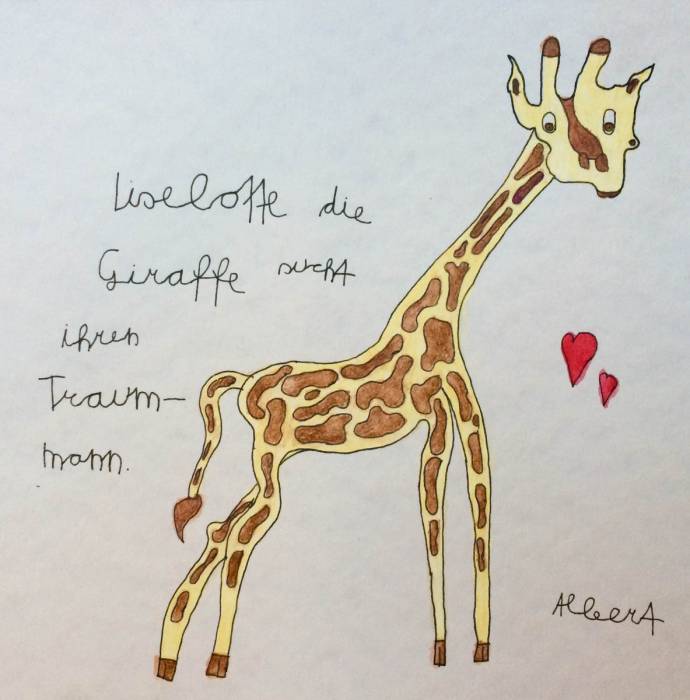 Liselotte die
Giraffe sucht
ihren
Traum-
mann.
Albert